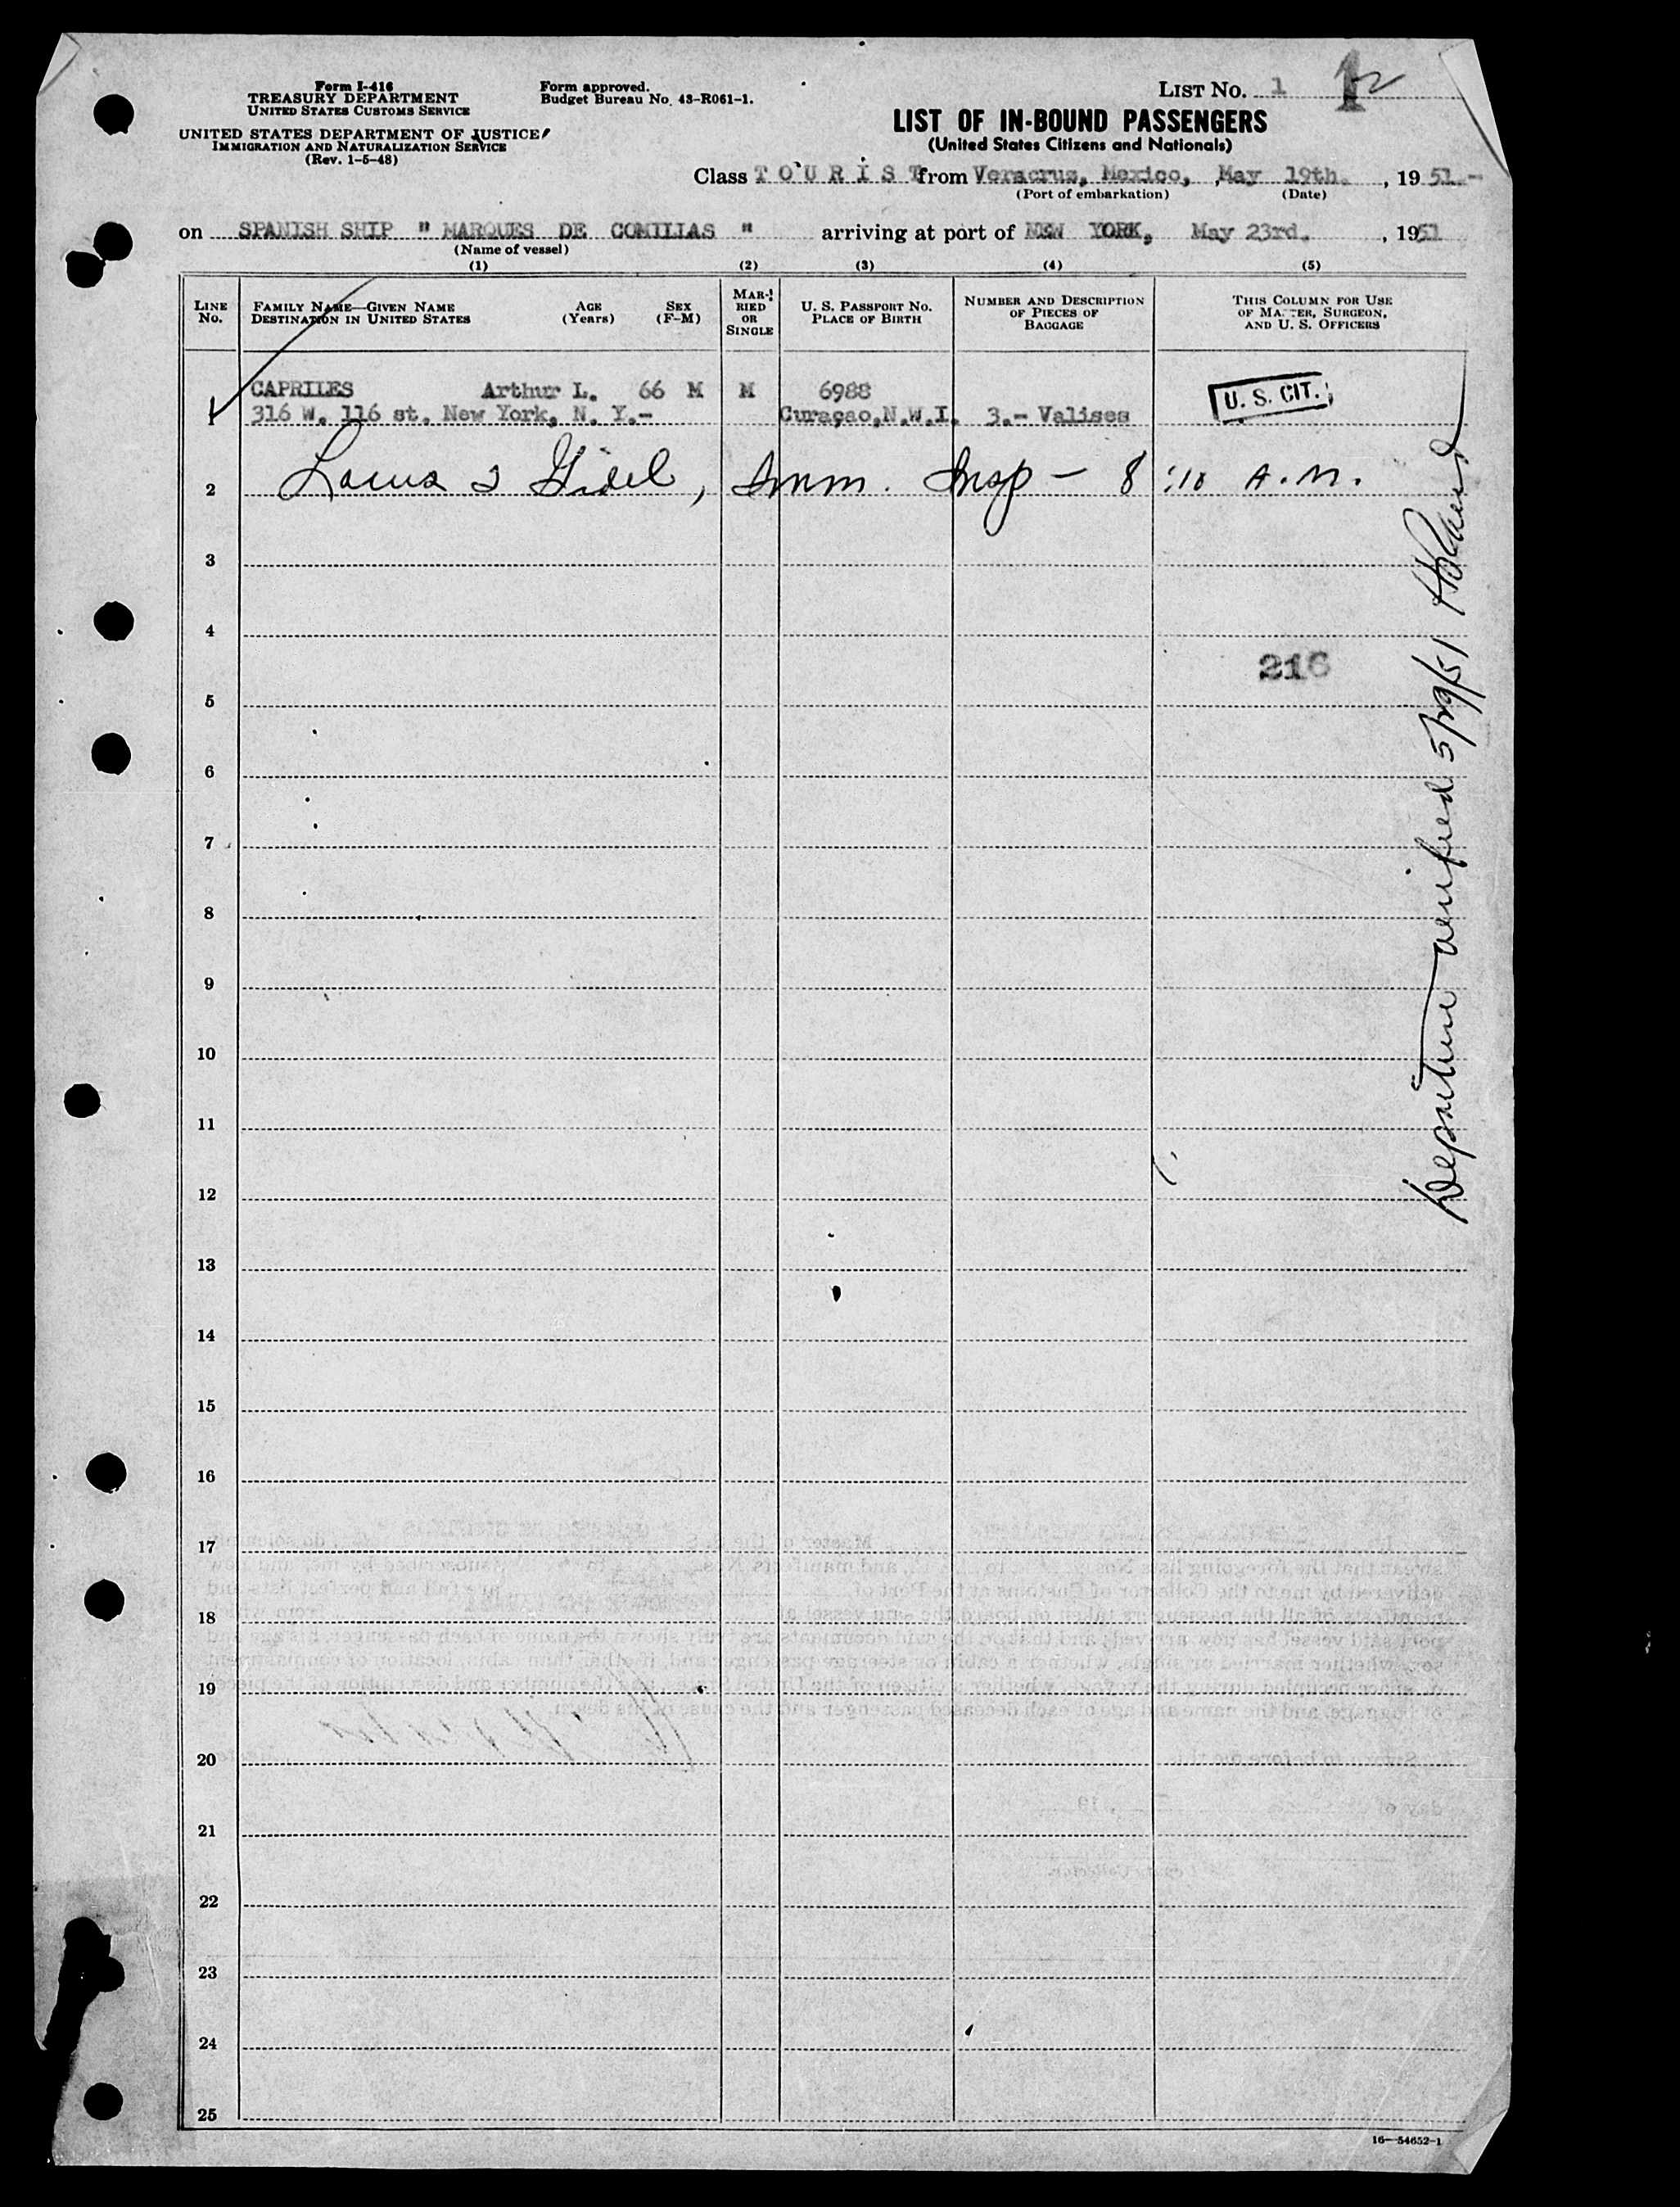 Form I-416
TREASURY DEPARTMENT
UNITED STATES CUSTOMS SERVICE
UNITED STATES DEPARTMENT OF JUSTICE
IMMIGRATION AND NATURALIZATION SERVICE
(Rev. 1-5-48)
Form approved.
Budget Bureau No. 43-R061-1.
LIST NO. 1
LIST OF IN-BOUND PASSENGERS
(United States Citizens and Nationals)
Class T O U R I S T from Veracruz, Mexico, May 19th. , 19 51.-
(Port of embarkation) (Date)
on SPANISH SHIP " MARQUES DE COMILLAS " arriving at port of NEW YORK, May 23rd. , 1951
(Name of vessel)
(1) (2) (3) (4) (5)
LINE NO.
FAMILY NAME—GIVEN NAME AGE SEX
DESTINATION IN UNITED STATES (Years) (F-M)
MARRIED OR SINGLE
U. S. PASSPORT NO.
PLACE OF BIRTH
NUMBER AND DESCRIPTION
OF PIECES OF
BAGGAGE
THIS COLUMN FOR USE
OF MASTER, SURGEON,
AND U. S. OFFICERS
CAPRILES Arthur L. 66 M M 6988 U. S. CIT.
1 316 W. 116 st. New York, N. Y.- Curaçao,N.W.I. 3.- Valises
2 Imm. Insp — 8:10 A.M.
3
4
216
5
6
7
8
9
10
11
12
13
14
15
16
17
18
19
20
21
22
23
24
25
Departure verified
16—54652-1